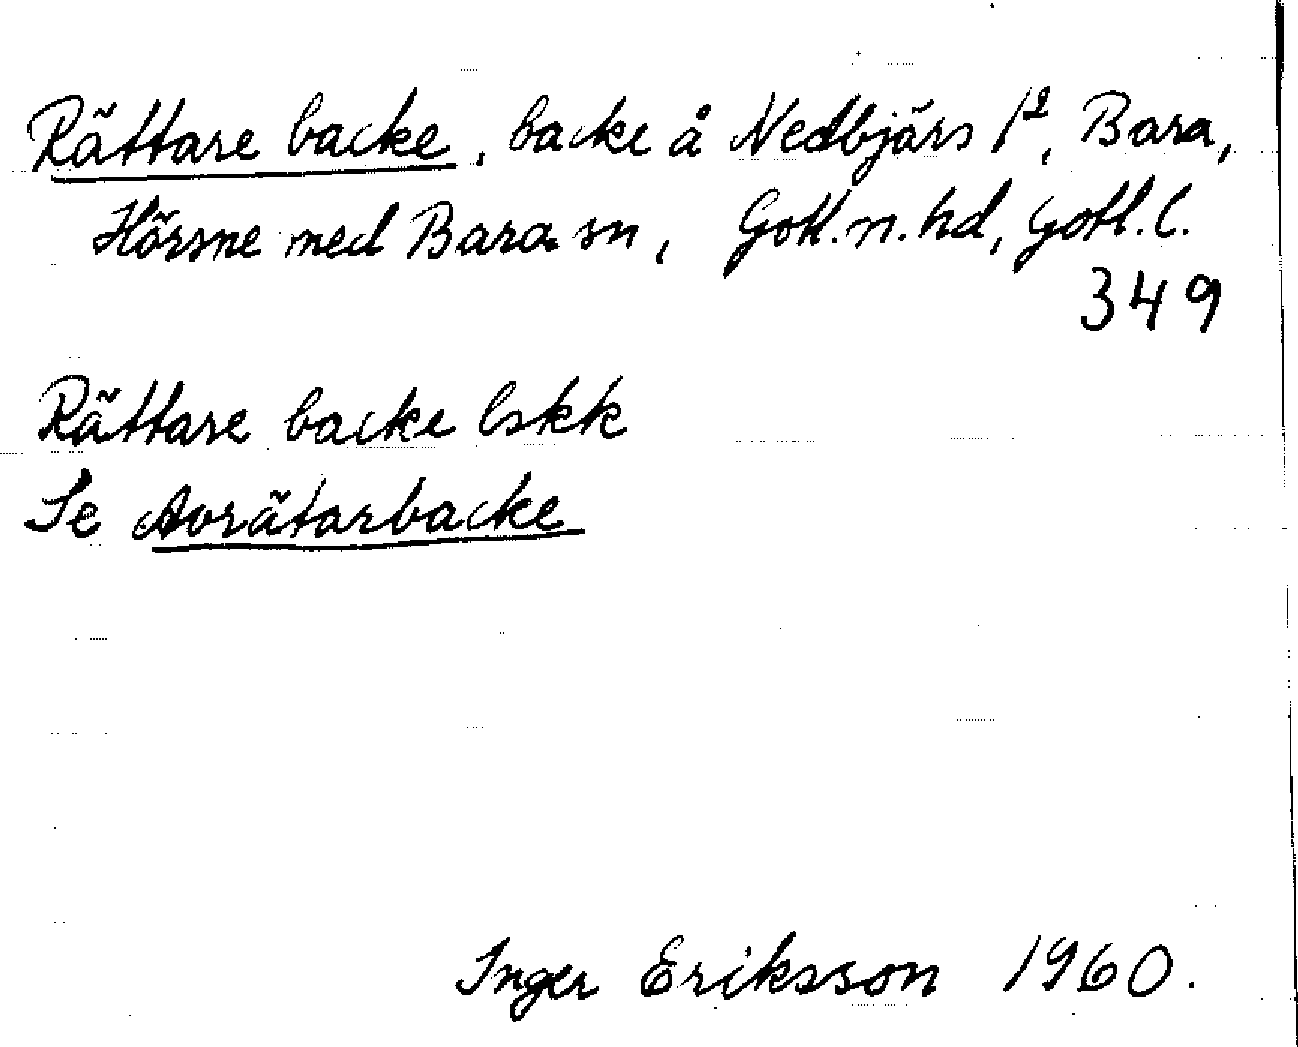 Rättare backe, backe å Nedbjärs 1², Bara,
Hörsne med Bara sn, Gotl.n.hd, Gotl.l.
349
Rättare backe lskk
Se Avrätarbacke
Inger Eriksson 1960.